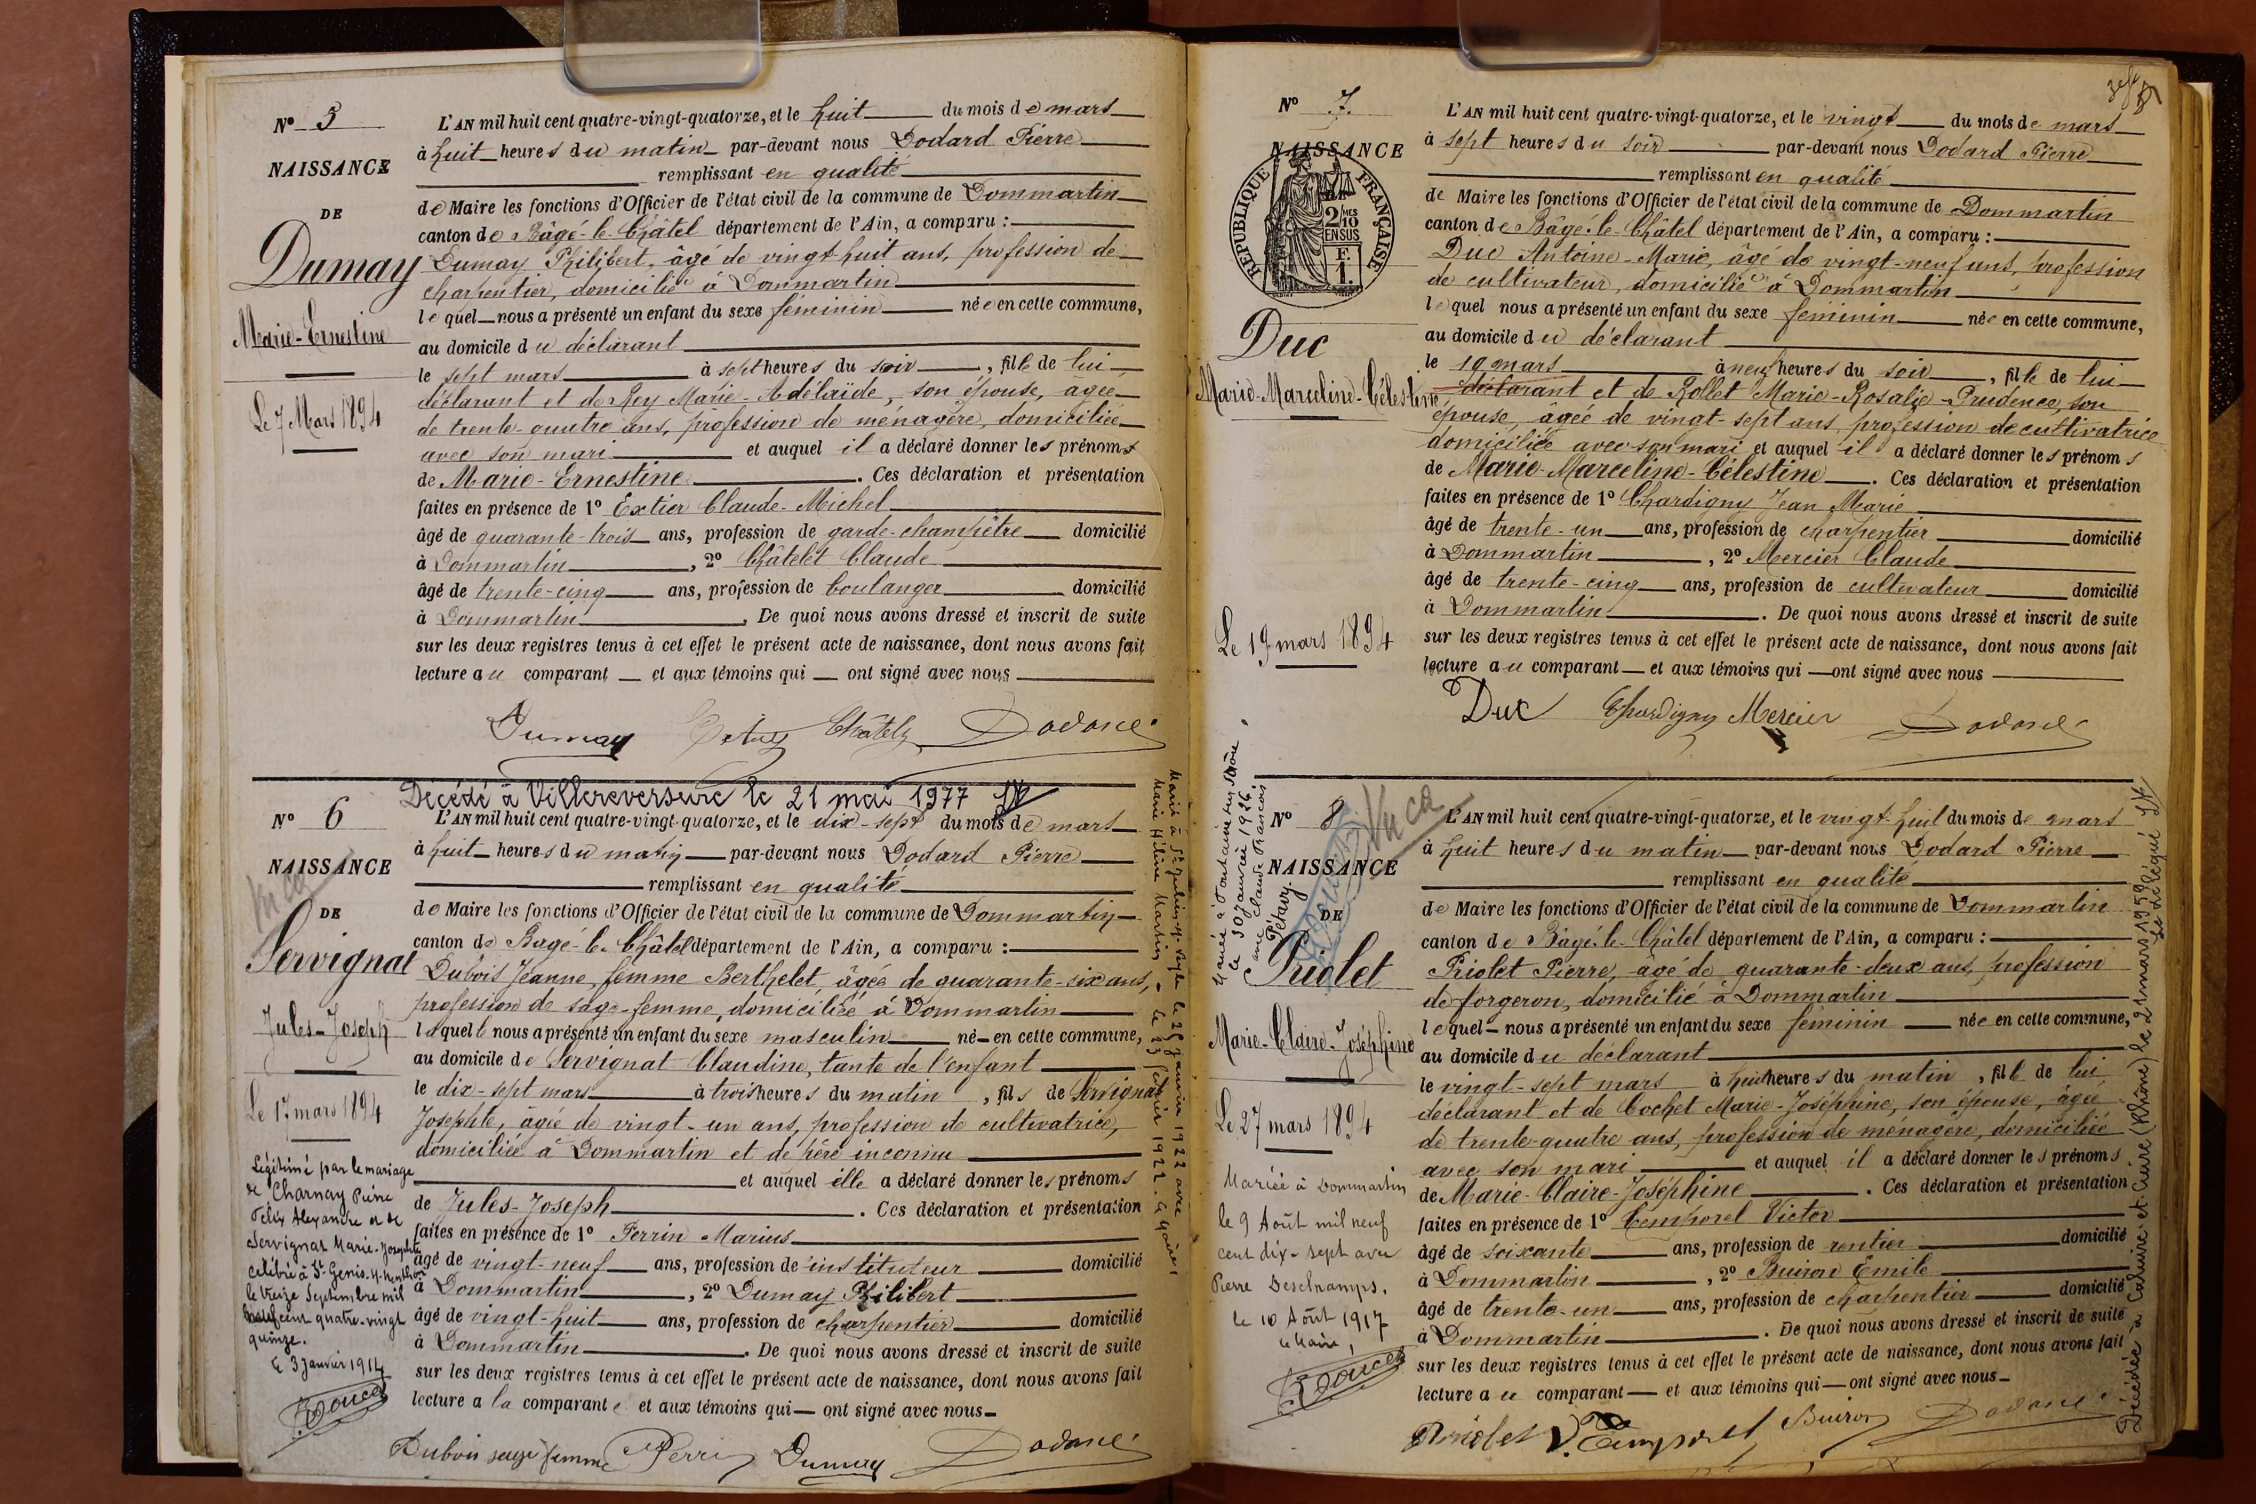 Nº 5
NAISSANCE
DE
Dumay
Marie-Ernestine
Le 7 Mars 1894
L'AN mil huit cent quatre-vingt-quatorze, et le huit du mois de mars
à huit heures du matin par-devant nous Dodard Pierre
remplissant en qualité
de Maire les fonctions d'Officier de l'état civil de la commune de Dommartin
canton de Bâgé-le-Châtel département de l'Ain, a comparu :
Dumay Philibert, âgé de vingt-huit ans, profession de
charpentier, domicilié à Dommartin
lequel nous a présenté un enfant du sexe féminin née en cette commune,
au domicile du déclarant
le sept mars à sept heures du soir, fille de lui
déclarant et de Rey Marie-Adélaïde, son épouse, âgée
de trente-quatre ans, profession de ménagère, domiciliée
avec son mari et auquel il a déclaré donner les prénoms
de Marie-Ernestine. Ces déclaration et présentation
faites en présence de 1º Extier Claude-Michel
âgé de quarante-trois ans, profession de garde-champêtre domicilié
à Dommartin, 2º Châtelet Claude
âgé de trente-cinq ans, profession de boulanger domicilié
à Dommartin. De quoi nous avons dressé et inscrit de suite
sur les deux registres tenus à cet effet le présent acte de naissance, dont nous avons fait
lecture au comparant et aux témoins qui ont signé avec nous
Dumay Châtelet Dodard
Décédé à Villereversure le 21 mai 1977
Nº 6
NAISSANCE
DE
Servignat
Jules-Joseph
Le 17 mars 1894
Légitimé par le mariage
de Charnay Pierre
Félix Alexandre et de
Servignat Marie-Josephte
célébré à St Genis-s-Menthon
le treize Septembre mil
huit cent quatre-vingt
quinze.
Le 3 Janvier 1914
L'AN mil huit cent quatre-vingt-quatorze, et le dix-sept du mois de mars
à huit heures du matin par-devant nous Dodard Pierre
remplissant en qualité
de Maire les fonctions d'Officier de l'état civil de la commune de Dommartin
canton de Bagé-le-Châtel département de l'Ain, a comparu :
Dubois Jeanne, femme Berthelet, âgée de quarante-six ans,
profession de sage-femme, domiciliée à Dommartin
laquelle nous a présenté un enfant du sexe masculin né en cette commune,
au domicile de Servignat Claudine, tante de l'enfant
le dix-sept mars à trois heures du matin, fils de Servignat
Josephte, âgée de vingt-un ans, profession de cultivatrice,
domiciliée à Dommartin et de père inconnu
et auquel elle a déclaré donner les prénoms
de Jules-Joseph. Ces déclaration et présentation
faites en présence de 1º Perrin Marius
âgé de vingt-neuf ans, profession de instituteur domicilié
à Dommartin, 2º Dumay Philibert
âgé de vingt-huit ans, profession de charpentier domicilié
à Dommartin. De quoi nous avons dressé et inscrit de suite
sur les deux registres tenus à cet effet le présent acte de naissance, dont nous avons fait
lecture a la comparante et aux témoins qui ont signé avec nous
Dubois sage femme Perrin Dumay Dodard
Marié à St Julien-s-Reyssouze le 25 Janvier 1922 avec
Marie Hélène Martin. Le 23 février 1922.
Nº 7
NAISSANCE
RÉPUBLIQUE FRANÇAISE
2/10 MES
EN SUS
F.
1.
Duc
Marie-Marceline-Célestine
Le 19 mars 1894
L'AN mil huit cent quatre-vingt-quatorze, et le vingt du mois de mars
à sept heures du soir par-devant nous Dodard Pierre
remplissant en qualité
de Maire les fonctions d'Officier de l'état civil de la commune de Dommartin
canton de Bâgé-le-Châtel département de l'Ain, a comparu :
Duc Antoine-Marie, âgé de vingt-neuf ans, profession
de cultivateur, domicilié à Dommartin
lequel nous a présenté un enfant du sexe féminin née en cette commune,
au domicile du déclarant
le 19 mars à neuf heures du soir, fille de lui
déclarant et de Rollet Marie-Rosalie-Prudence, son
épouse, âgée de vingt-sept ans, profession de cultivatrice
domiciliée avec son mari et auquel il a déclaré donner les prénoms
de Marie-Marceline-Célestine. Ces déclaration et présentation
faites en présence de 1º Chardigny Jean Marie
âgé de trente-un ans, profession de charpentier domicilié
à Dommartin, 2º Mercier Claude
âgé de trente-cinq ans, profession de cultivateur domicilié
à Dommartin. De quoi nous avons dressé et inscrit de suite
sur les deux registres tenus à cet effet le présent acte de naissance, dont nous avons fait
lecture au comparant et aux témoins qui ont signé avec nous
Duc Chardigny Mercier Dodard
Nº 8
NAISSANCE
DE
Priolet
Marie-Claire-Joséphine
Le 27 mars 1894
Mariée à Dommartin
le 9 Août mil neuf
cent dix-sept avec
Pierre Deschamps.
Le 10 Août 1917
Le Maire,
Mariée à Fontaines sur Saône
le 30 Janvier 1926,
avec Claude François
Pétavy.
L'AN mil huit cent quatre-vingt-quatorze, et le vingt-huit du mois de mars
à huit heures du matin par-devant nous Dodard Pierre
remplissant en qualité
de Maire les fonctions d'Officier de l'état civil de la commune de Dommartin
canton de Bâgé-le-Châtel département de l'Ain, a comparu :
Priolet Pierre, âgé de quarante-deux ans, profession
de forgeron, domicilié à Dommartin
lequel nous a présenté un enfant du sexe féminin née en cette commune,
au domicile du déclarant
le vingt-sept mars à huit heures du matin, fille de lui
déclarant et de Cochet Marie-Joséphine, son épouse, âgée
de trente-quatre ans, profession de ménagère, domiciliée
avec son mari et auquel il a déclaré donner les prénoms
de Marie-Claire-Joséphine. Ces déclaration et présentation
faites en présence de 1º Temporel Victor
âgé de soixante ans, profession de rentier domicilié
à Dommartin, 2º Buiron Emile
âgé de trente-un ans, profession de charpentier domicilié
à Dommartin. De quoi nous avons dressé et inscrit de suite
sur les deux registres tenus à cet effet le présent acte de naissance, dont nous avons fait
lecture au comparant et aux témoins qui ont signé avec nous
Priolet V. Temporel Buiron Dodard
Décédée à Caluire-et-Cuire (Rhône) le 21 mars 1959
Le Délégué